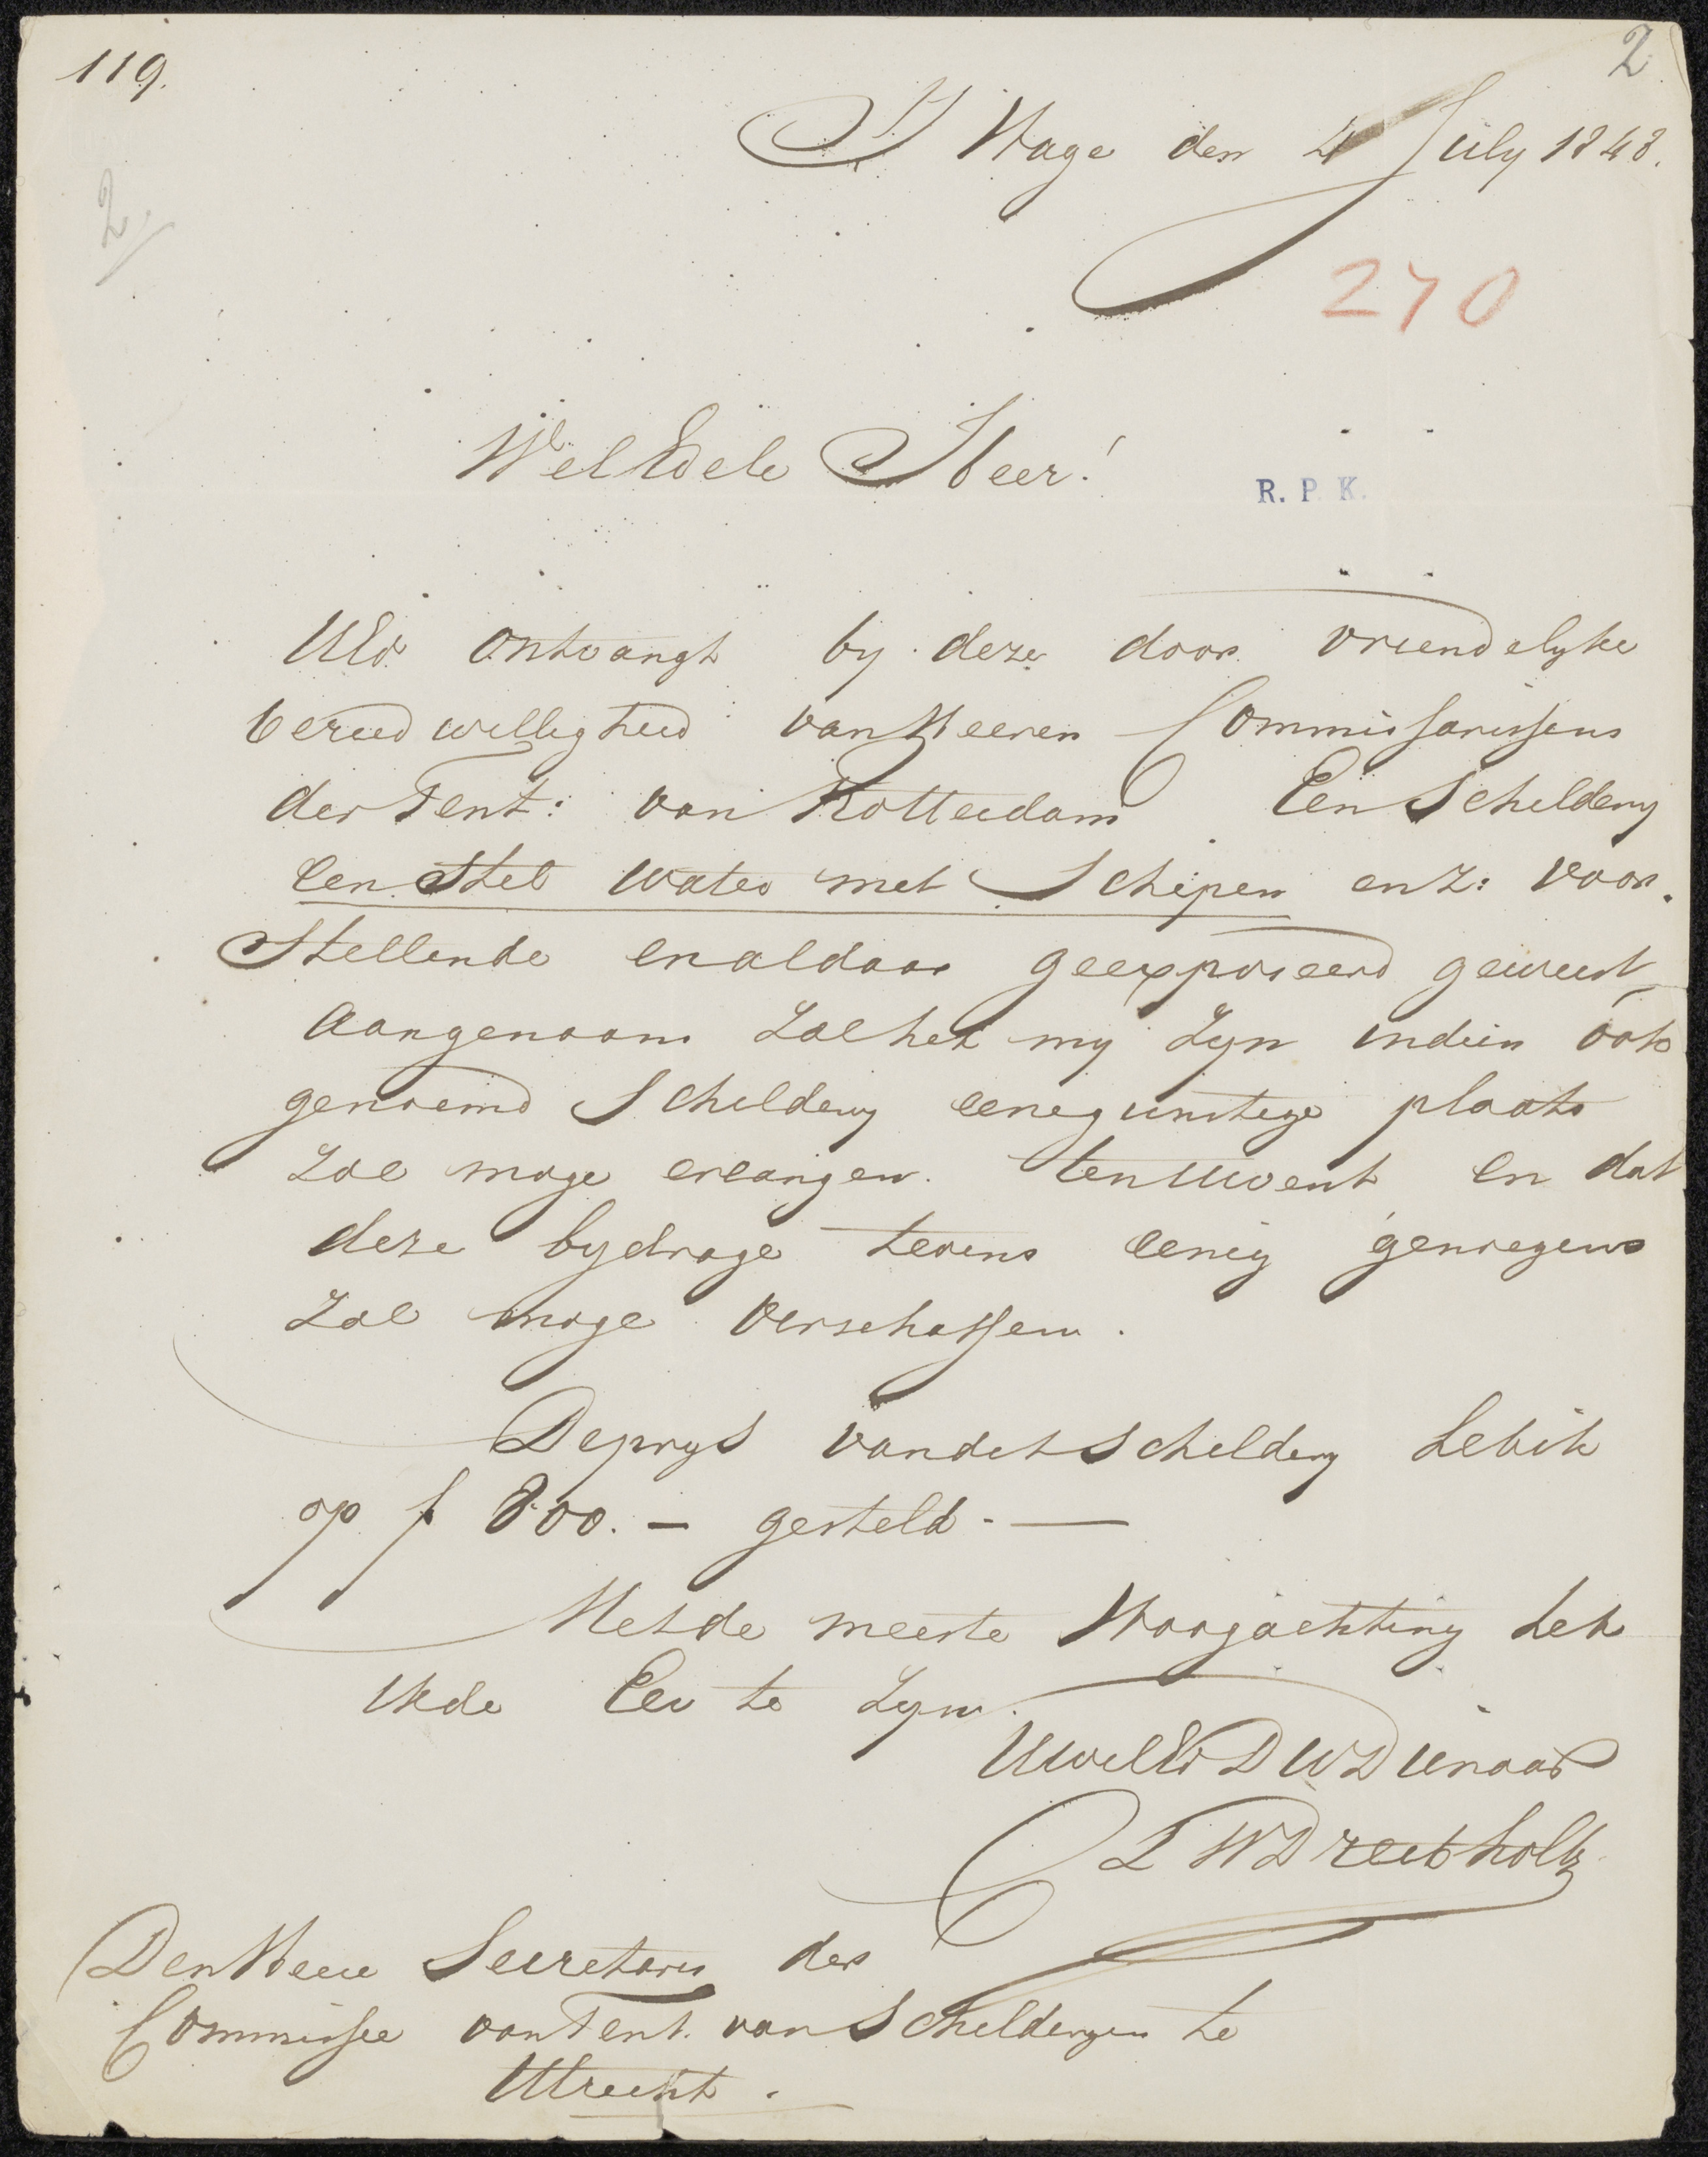 119.
2
S Hage den 4 July 1848.
2
270
WelEdele Heer!
R. P. K.
UEd ontvangt by deze door vriendelyke
bereidwilligheid van Heeren Commissarissens
der Tent: van Rotterdam Een Schildery
een Stil water met Schepen enz: voor.
Stellende en aldaar geexposeerd geweest,
Aangenaam zal het my zyn indien ook
genoemd Schildery eene gunstige plaats
zal moge erlangen. ten Uwent en dat
deze bydrage tevens eenig genoegens
zal moge verschaffen.
De prys van det Schildery heb ik
op f 800. — gesteld. —
Met de meeste Hoogachting heb
ik de Eer te zyn.
UwelEd D W Dienaar
L W Dreibholtz
Den Heere Secretaris der
Commissie van Tent. van Schilderyen te
Utrecht.